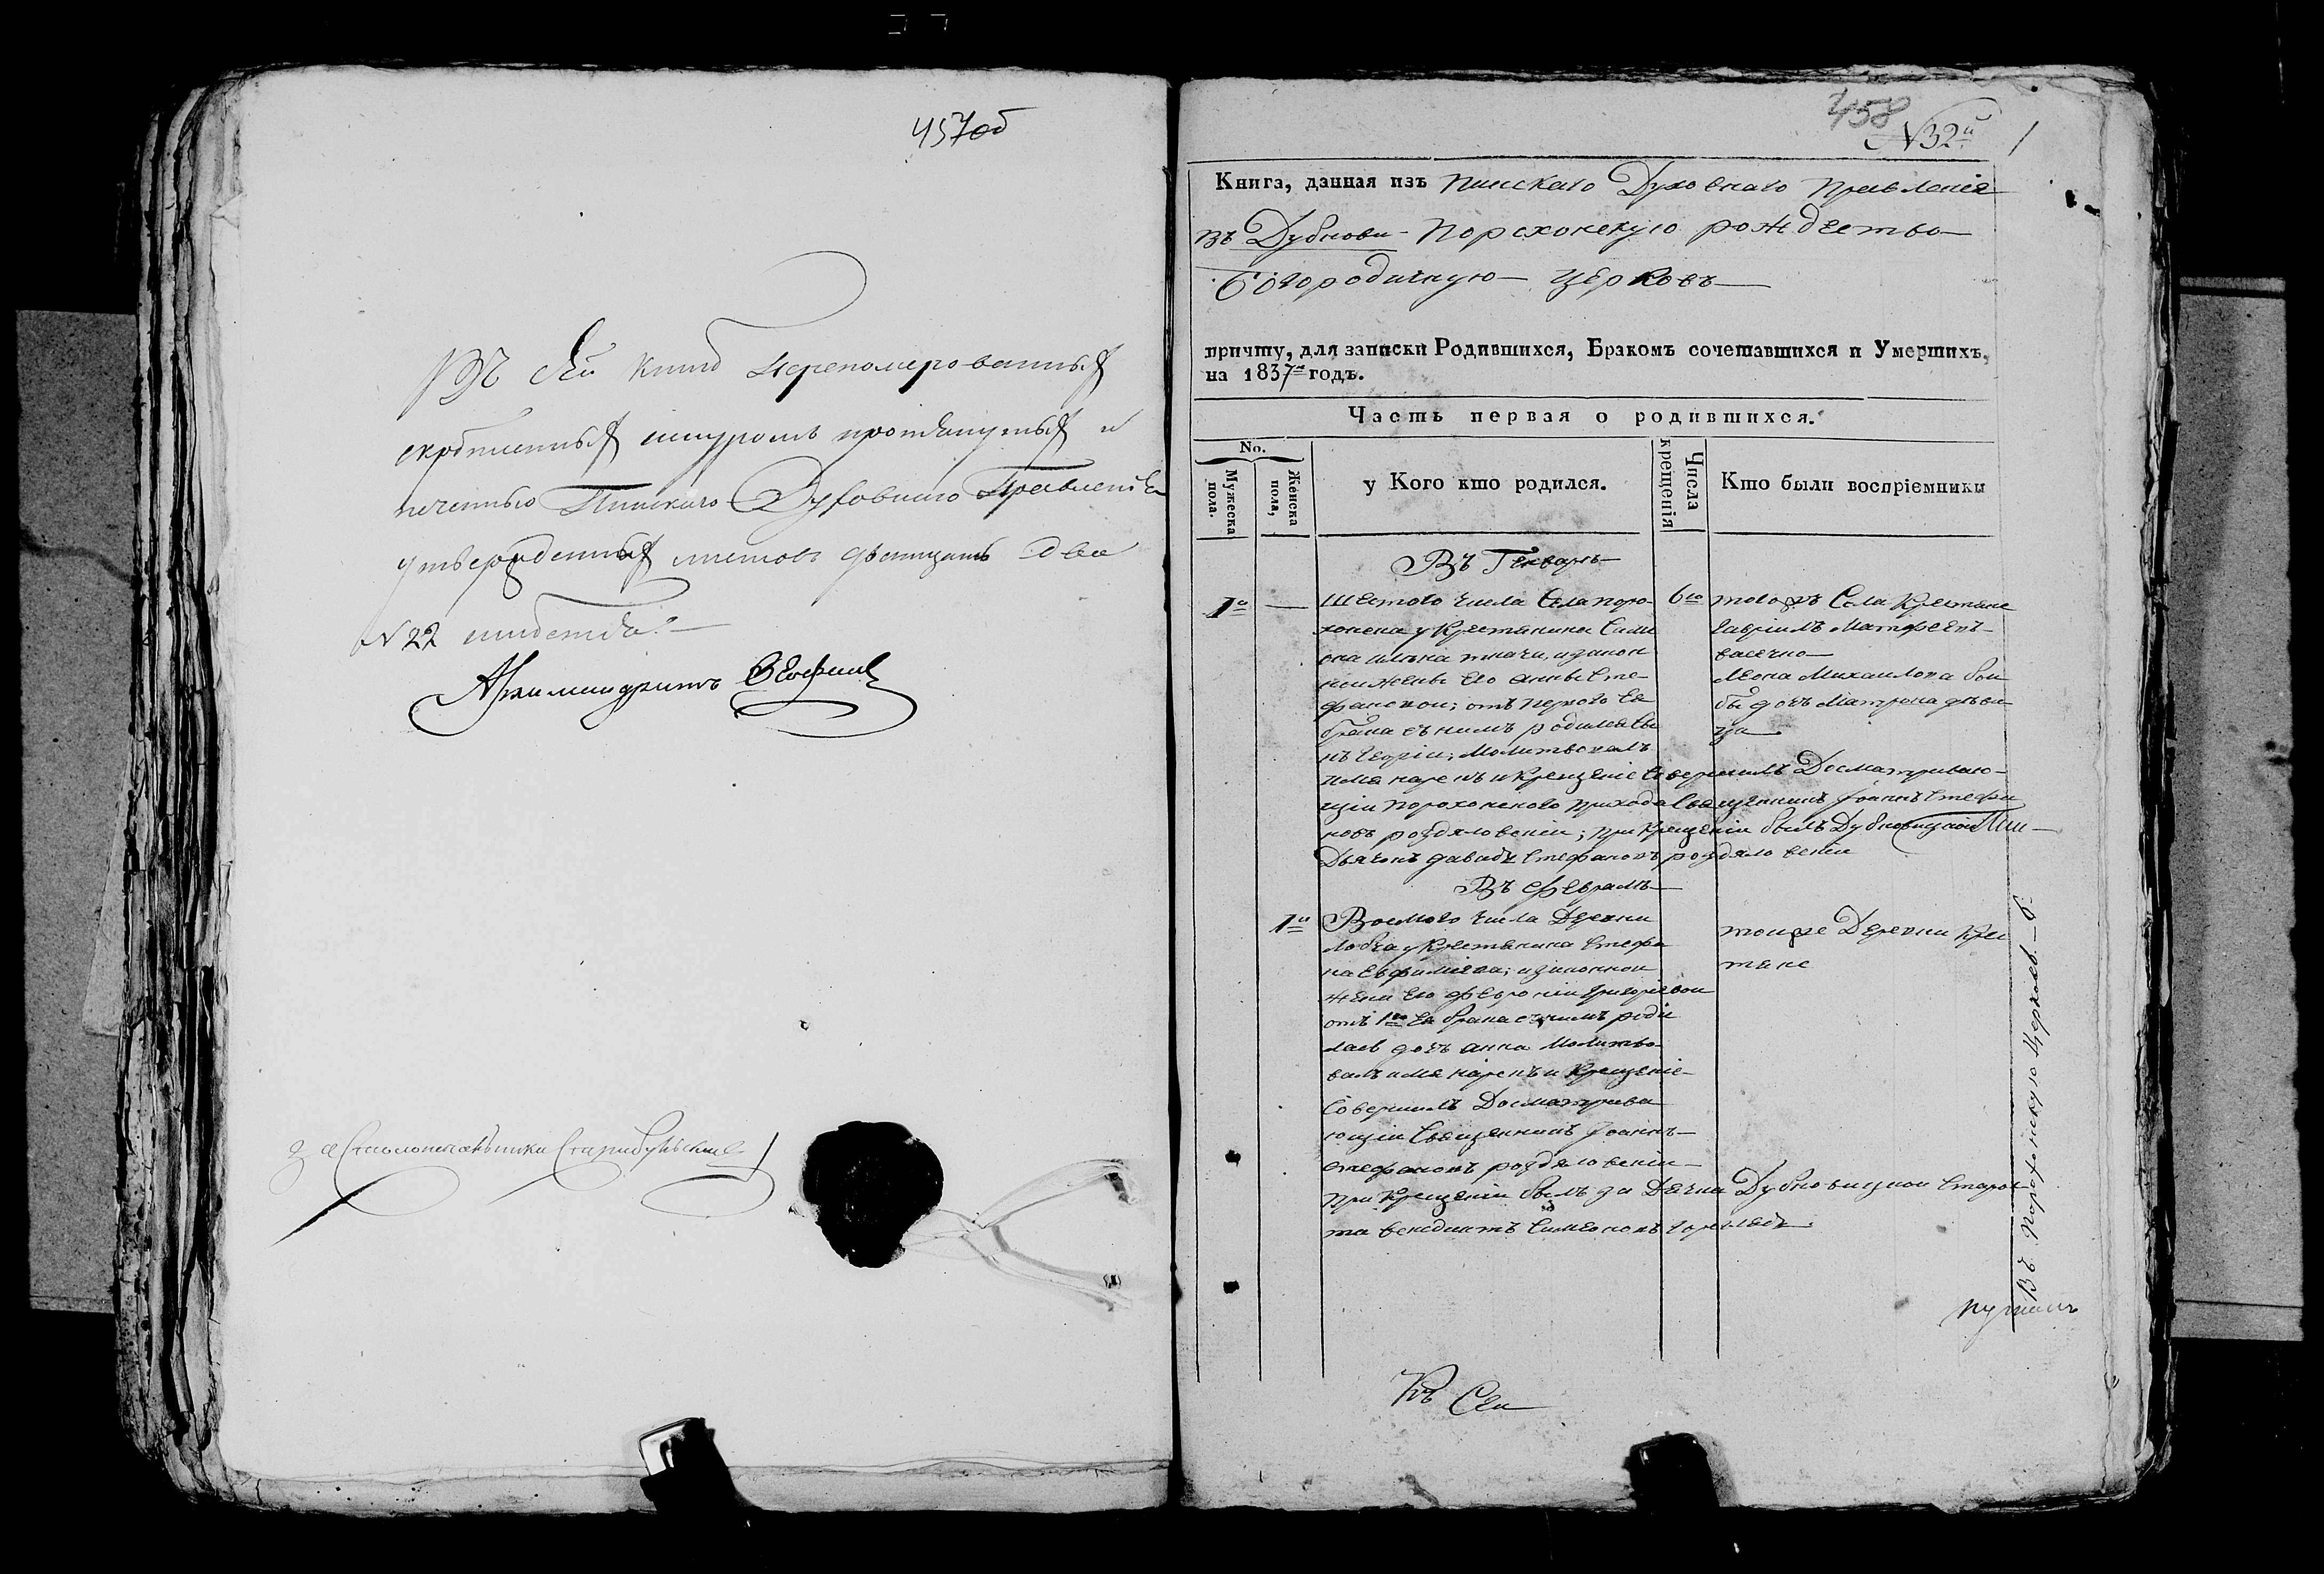 457об
Въ сей книгѣ перенумерованныхъ
скрѣпленныхъ шнуромъ протянутыхъ и
печатью Пинскаго Духовнаго Правленія
утвержденныхъ листовъ двадцать два
N 22 свидѣт.
Архимандритъ
458
N 32й
1
Книга, данная изъ Пинскаго Духовнаго Правленія
въ Дубнови- Порохонскую рождество
Богородичную церковь
причту, для записки Родившихся, Бракомъ сочетавшихся и Умершихъ,
на 1837й годъ.
Часть первая о родившихся.
No.
Мужеска пола.
Женска пола,
у Кого кто родился.
Числа крещенія
Кто были воспріемники
Въ Генварѣ
1й — шестого числа Села поро-
хонска у Крестьянина Симе
она ткача, изакон
ной жены его анны Сте-
фановой; отъ первого Ея
брака съ нимъ родился сы
нъ Георгіи; Молитвовалъ
имя нарекъ и Крещеніе Совершилъ Досматриваю-
щіи порохонского прихода Священникъ Іоаннъ Стефа
новъ роздяловскіи; при Крещеніи былъ Дубновицкои
Дьячокъ давидъ Стефановъ роздяловскіи
6го тогожъ Села Крестьяне
Гавріилъ Матфеевъ
васечко
Леона Михаилова бои
бы дочь Матрона дѣви
ца
Въ Февралѣ
1й Восмого числа Деревни
Лобча у Крестьянина Стефа
на Евфиміева; изаконнои
жены его Февроніи Григоріевои
отъ 1го Ея брака съ нимъ роди
лась дочь анна Молитво-
валъ имя нарекъ и Крещеніе
Совершилъ Досматрива
ющіи Священникъ Іоаннъ
стефановъ роздяловскіи
при Крещеніи былъ за Дьячка Дубновицкои Старос
та венедиктъ Симеоновъ
тоиже Деревни Крес
тьяне
Въ Порохонскую Церковь. — б.
Къ Сеи